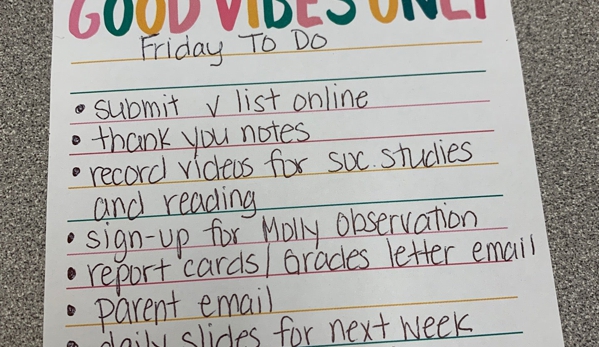 GOOD VIBES ONLY
Friday To Do
• submit √ list online
• thank you notes
• record videos for soc. studies
and reading
• sign-up for Molly Observation
• report cards/Grades letter email
• parent email
• daily slides for next week